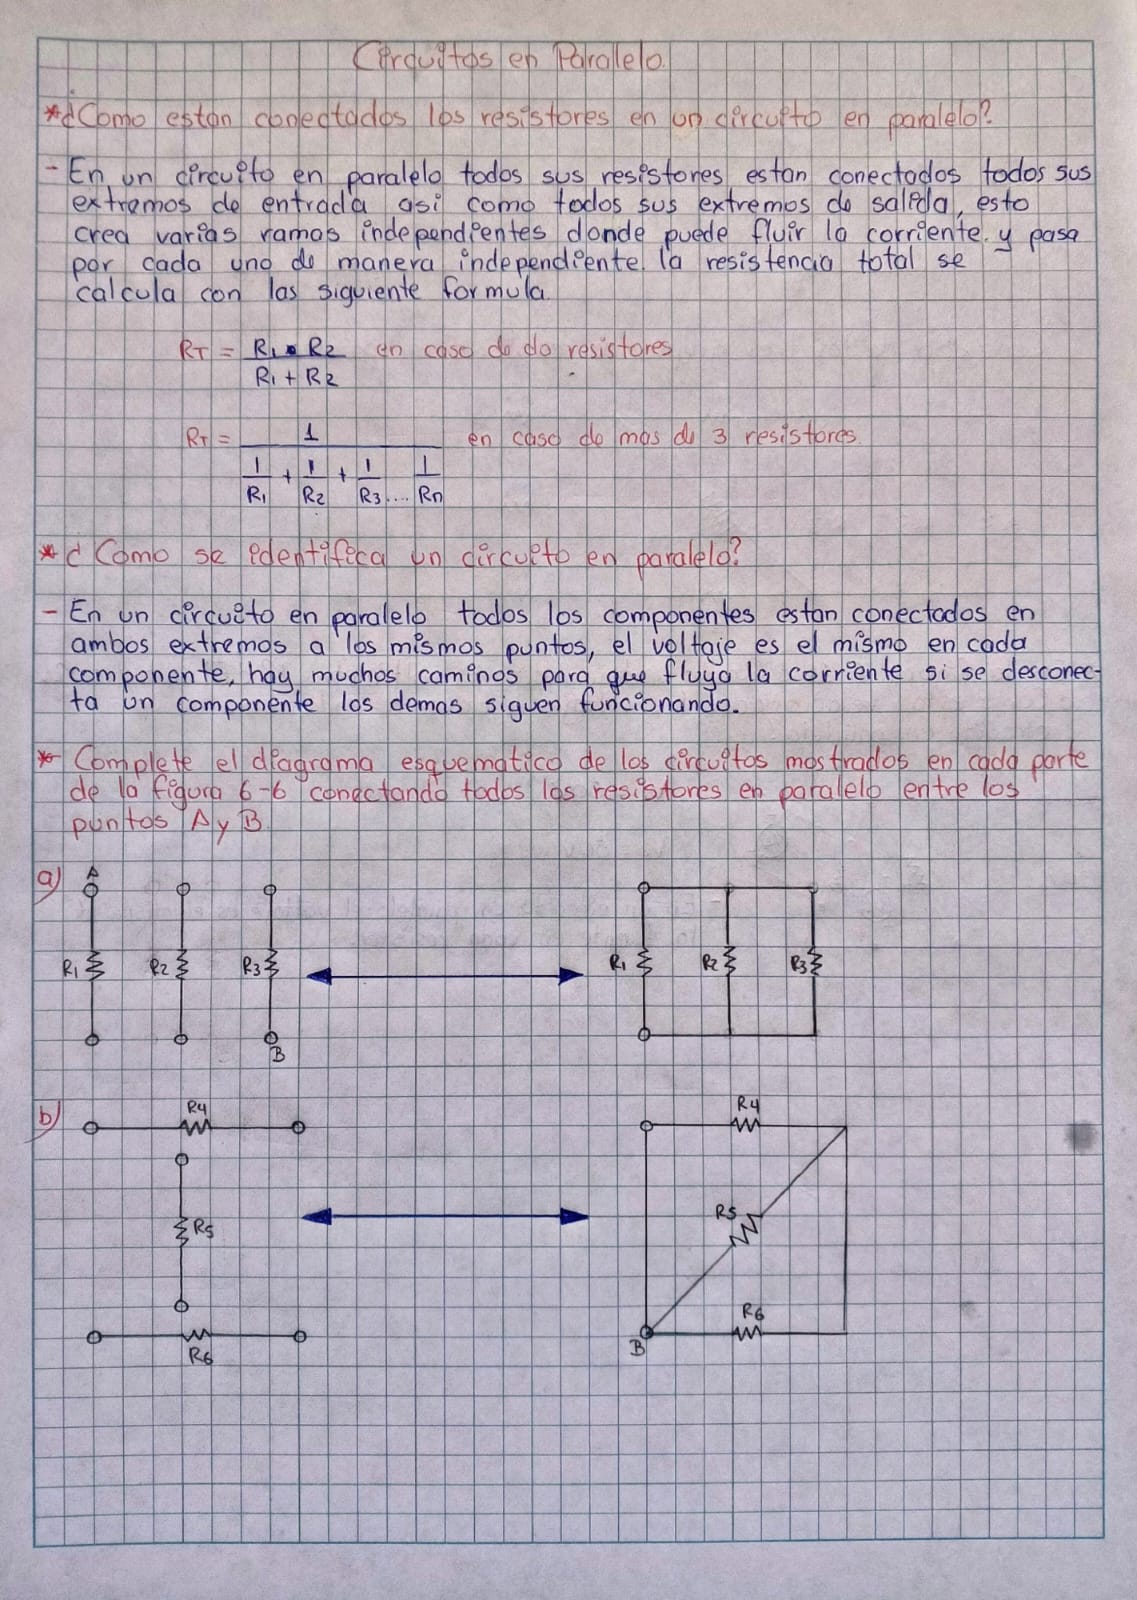 Circuitos en Paralelo
*¿Como estan conectados los resistores en un circuito en paralelo?
- En un circuito en paralelo todos sus resistores estan conectados todos sus
extremos de entrada asi como todos sus extremos de salida, esto
crea varias ramas independientes donde puede fluir la corriente y pasa
por cada uno de manera independiente. la resistencia total se
calcula con las siguiente formula
RT = R1 • R2 en caso de do resistores
R1 + R2
RT = 1 en caso de mas de 3 resistores.
1 + 1 + 1 1
R1 R2 R3.... Rn
*¿Como se identifica un circuito en paralelo?
- En un circuito en paralelo todos los componentes estan conectados en
ambos extremos a los mismos puntos, el voltaje es el mismo en cada
componente, hay muchos caminos para que fluya la corriente si se desconec-
ta un componente los demas siguen funcionando.
* Complete el diagrama esquematico de los circuitos mostrados en cada parte
de la figura 6-6 conectando todos los resistores en paralelo entre los
puntos A y B.
a) A
R1 R2 R3 R1 R2 R3
B
b) R4 R4
R5 R5
R6 R6
B